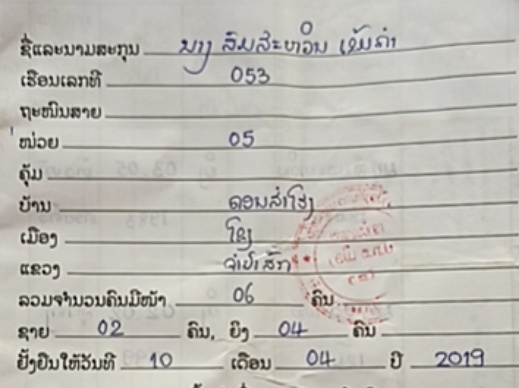 ຊື່ແລະນາມສະກຸນ ນາງ ສົມສະຫວັນ ເຂັມຄຳ
ເຮືອນເລກທີ 053
ຖະໜົນສາຍ
ໜ່ວຍ 05
ຄຸ້ມ
ບ້ານ ດອນສຳໂຮງ
ເມືອງ ໂຂງ
ແຂວງ ຈຳປາສັກ
ລວມຈຳນວນຄົນມີໜ້າ 06 ຄົນ
ຊາຍ 02 ຄົນ, ຍິງ 04 ຄົນ
ຢັ້ງຢືນໃຫ້ວັນທີ 10 ເດືອນ 04 ປີ 2019